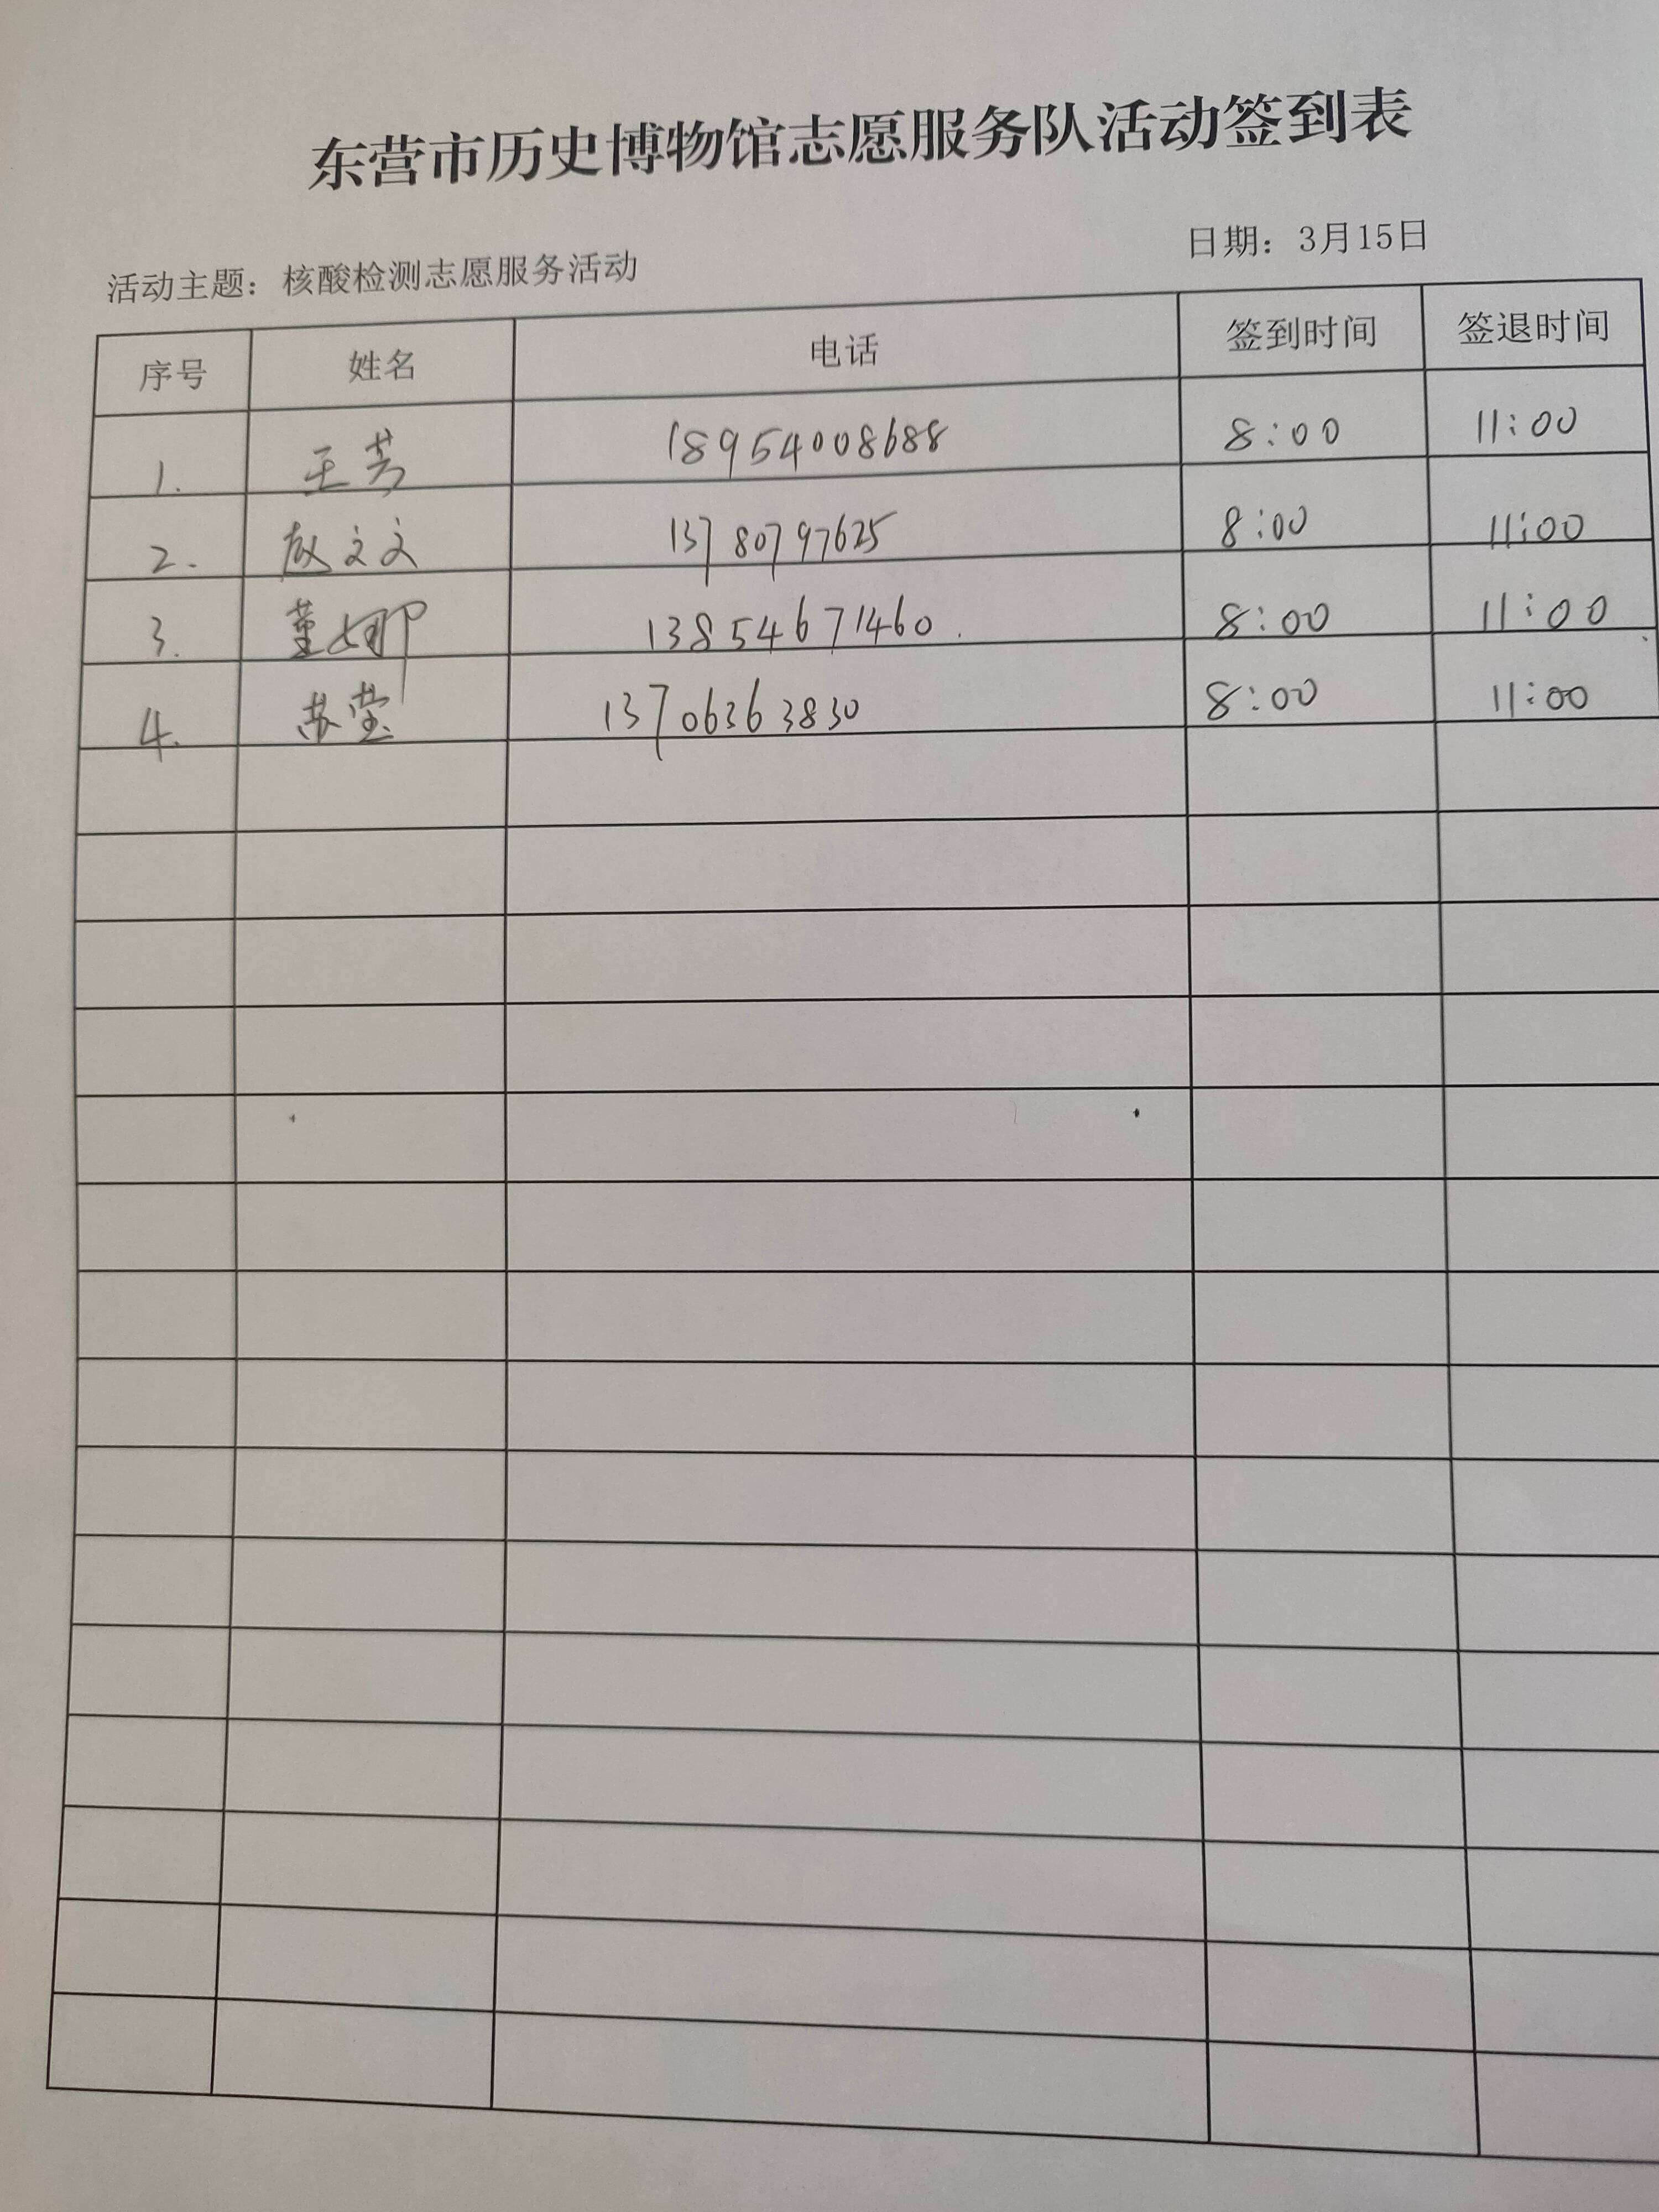 东营市历史博物馆志愿服务队活动签到表
活动主题：核酸检测志愿服务活动 日期：3月15日
序号 姓名 电话 签到时间 签退时间
1. 王芳 18954008688 8:00 11:00
2. 文文 13780797625 8:00 11:00
3. 董娜 13854671460. 8:00 11:00
4. 苏莹 13706363830 8:00 11:00